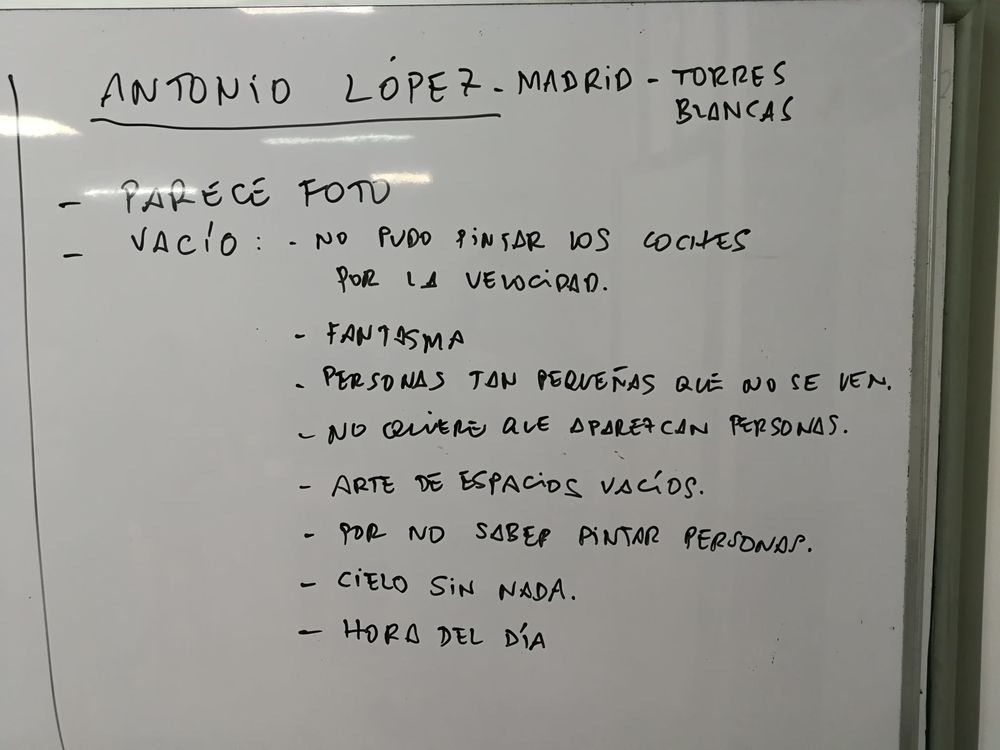 ANTONIO LÓPEZ - MADRID - TORRES
BLANCAS
- PARECE FOTO
- VACÍO: - NO PUDO PINTAR LOS COCHES
POR LA VELOCIDAD.
- FANTASMA
- PERSONAS TAN PEQUEÑAS QUE NO SE VEN.
- NO QUIERE QUE APAREZCAN PERSONAS.
- ARTE DE ESPACIOS VACÍOS.
- POR NO SABER PINTAR PERSONAS.
- CIELO SIN NADA.
- HORA DEL DÍA